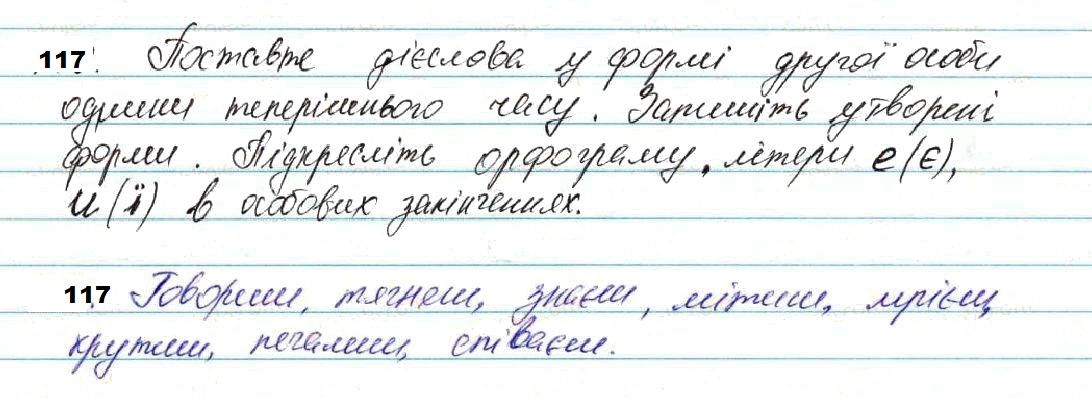 117. Поставте дієслова у формі другої особи
однини теперішнього часу. Запишіть утворені
форми. Підкресліть орфограму, літери е(є),
и(ї) в особових закінченнях.
117 Говориш, тягнеш, знаєш, мітиш, мрієш,
крутиш, печалиш, співаєш.